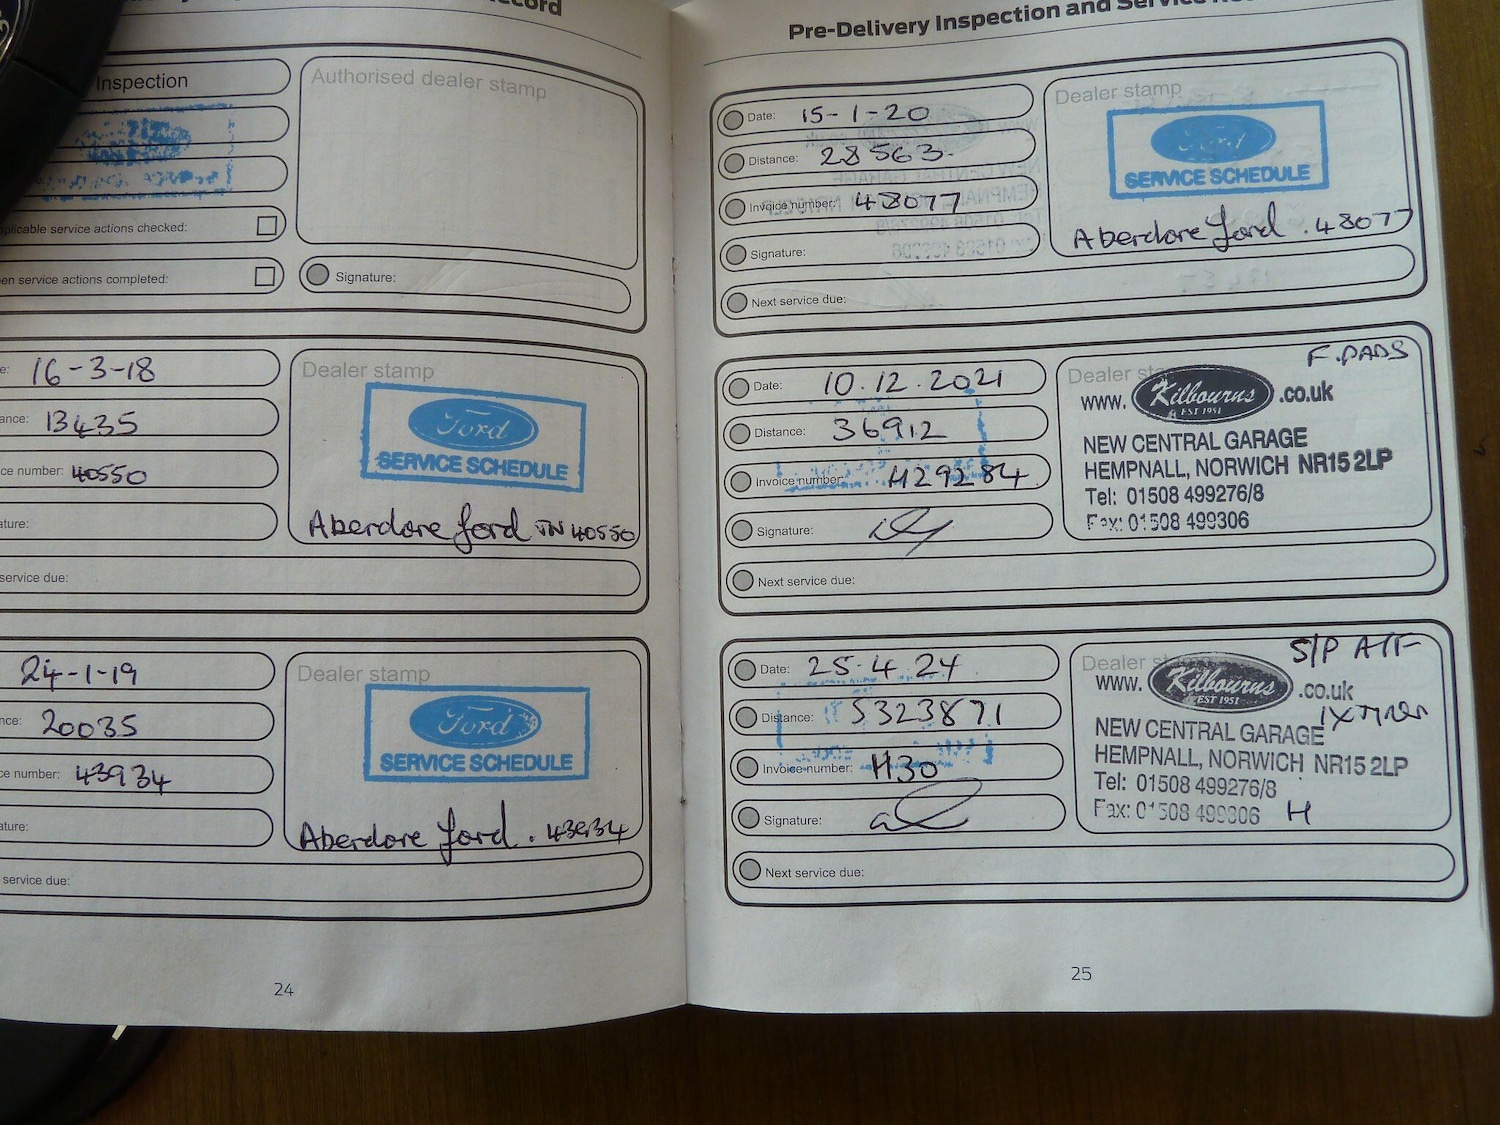 ecord
Inspection
Authorised dealer stamp
plicable service actions checked:
en service actions completed:
Signature:
e: 16-3-18
ance: 13435
ce number: 40550
ature:
service due:
Dealer stamp
Ford
SERVICE SCHEDULE
Aberdare ford IN 40550
24-1-19
nce: 20035
ce number: 43934
ature:
service due:
Dealer stamp
Ford
SERVICE SCHEDULE
Aberdare ford . 43934
24
Pre-Delivery Inspection and Service
Date: 15-1-20
Distance: 28563.
Invoice number: 48077
Signature:
Next service due:
Dealer stamp
Ford
SERVICE SCHEDULE
Aberdare ford . 48077
Date: 10.12.2021
Distance: 36912
Invoice number: H29284
Signature:
Next service due:
Dealer
F. PADS
www. Kilbourns .co.uk
EST 1951
NEW CENTRAL GARAGE
HEMPNALL, NORWICH NR15 2LP
Tel: 01508 499276/8
Fax: 01508 499306
Date: 25-4 24
Distance:
Invoice number: H30
Signature:
Next service due:
Dealer
www. Kilbourns .co.uk
EST 1951
NEW CENTRAL GARAGE
HEMPNALL, NORWICH NR15 2LP
Tel: 01508 499276/8
Fax: 01508 499306 H
25